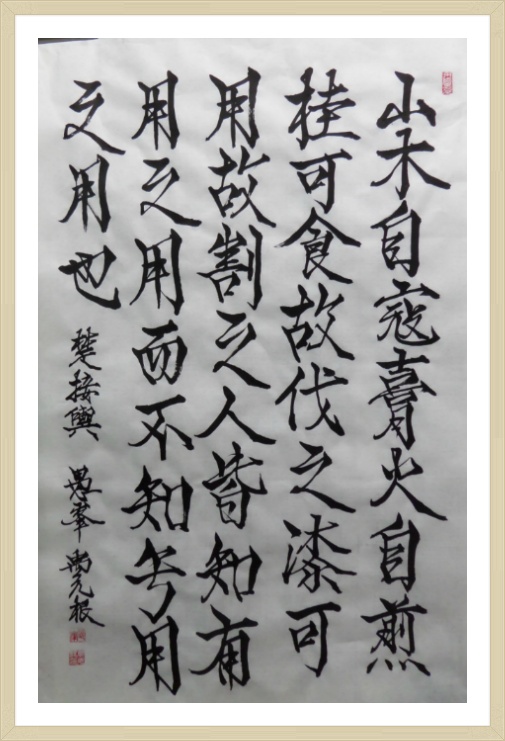 山木自寇膏火自煎
桂可食故伐之漆可
用故割之人皆知有
用之用而不知无用
之用也
楚接舆 愚峯 元根